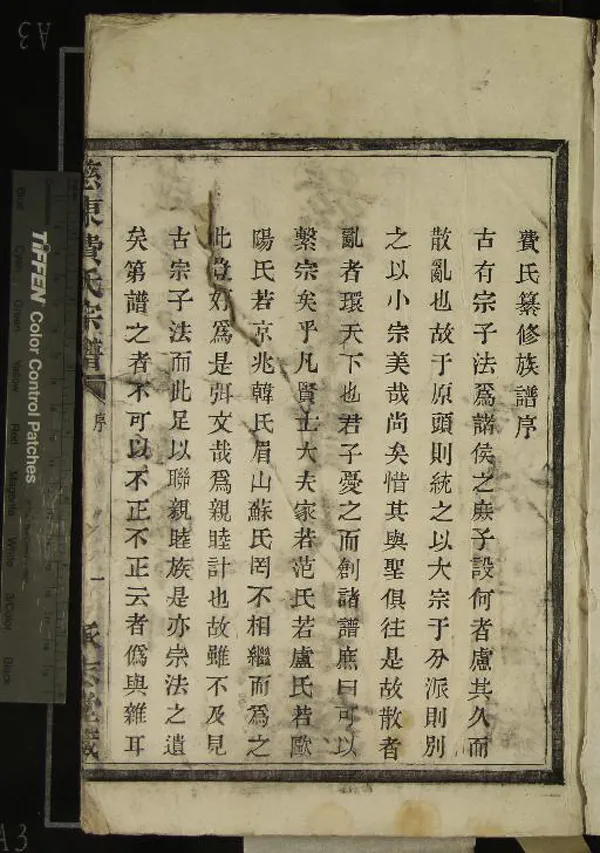 費氏纂修族譜序
古有宗子法爲諸侯之庶子設何者慮其久而
散亂也故于原頭則統之以大宗于分派則別
之以小宗美哉尚矣惜其與聖俱往是故散者
亂者環天下也君子憂之而創諸譜庶曰可以
繫宗矣乎凡賢士大夫家若范氏若盧氏若歐
陽氏若京兆韓氏眉山蘇氏罔不相繼而爲之
此豈好爲是弭文哉爲親睦計也故雖不及見
古宗子法而此足以聯親睦族是亦宗法之遺
矣第譜之者不可以不正不正云者僞與雜耳
慈東費氏宗譜
序
一
承志堂藏
TIFFEN Color Control Patches
Blue
Cyan
Green
Yellow
Red
Magenta
White
3/Color
Black
A3
A3